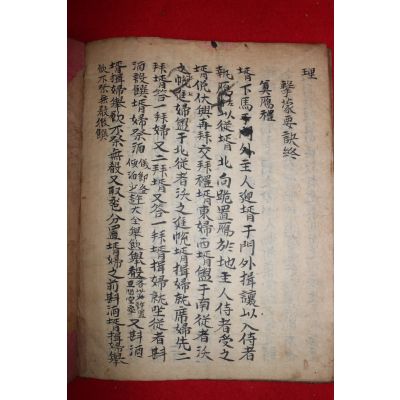 理
擊蒙要訣終
奠雁禮
壻下馬于門外主人迎壻于門外揖讓以入侍者
執雁以從壻北向跪置雁於地主人侍者受之
壻俛伏興再拜交拜禮壻東婦西壻盥于南從者沃
之帨進婦盥于北從者沃之進帨壻揖婦就席婦先二
拜壻答一拜婦又二拜壻又答一拜壻揖婦就坐從者斟
酒設饌壻婦祭酒 又斟酒
壻揖婦擧飮不祭無殽又取卺分置壻婦之前斟酒壻揖婦擧
飮不祭無殽